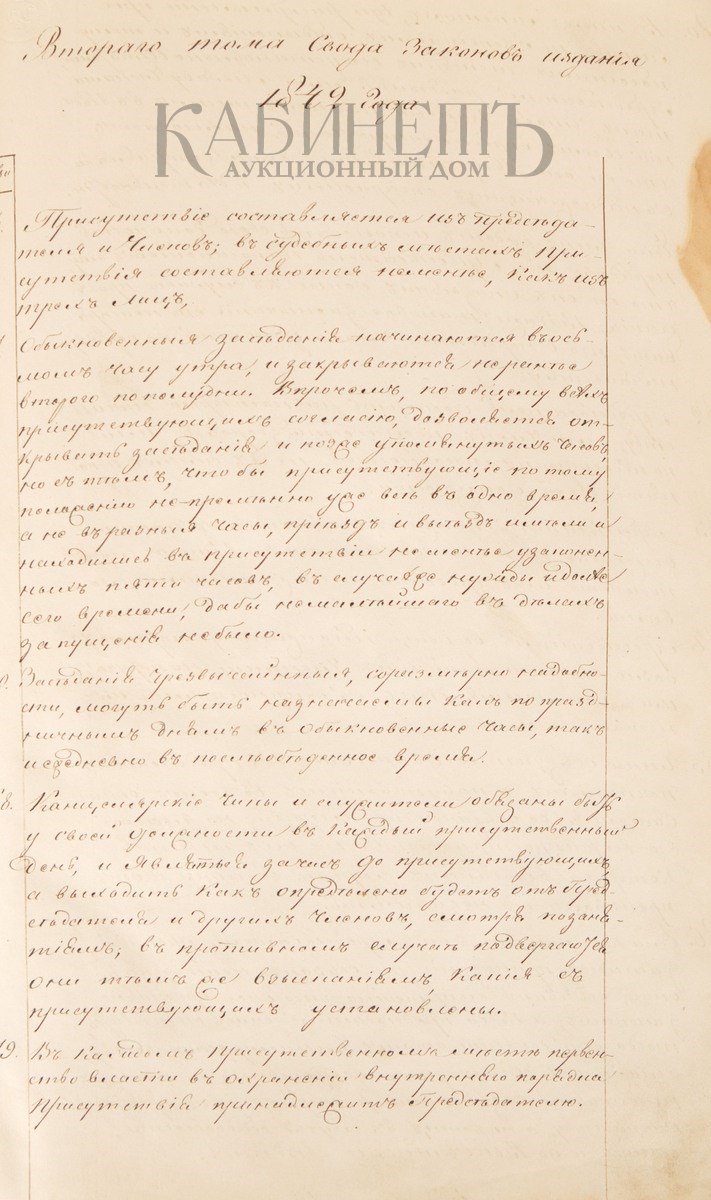 Втораго тома Свода Законовъ изданія
1842 Года
КАБИНЕТЪ
АУКЦИОННЫЙ ДОМ
Присутствіе составляется изъ Предсѣда-
теля и Членовъ; въ судебныхъ мѣстахъ При-
сутствія составляются неменѣе, какъ изъ
трехъ лицъ,
Обыкновенныя засѣданія начинаются въ ось-
момъ часу утра, и закрываются не ранѣе
втораго по полудни. Впрочемъ, по общему всѣхъ
присутствующихъ согласію, дозволяется от-
крывать засѣданія и позже упомянутыхъ часовъ,
но съ тѣмъ, что бы присутствующіе по тому
положенію не премѣнно уже всѣ въ одно время,
а не въ разныя часы, пріѣздъ и выѣздъ имѣли и
находились въ присутствіи не менѣе узаконен-
ныхъ пяти часовъ, въ случаѣ же нужды и долѣе
сего времени, дабы не малѣйшаго въ дѣлахъ
запущенія небыло.
0. Засѣданія чрезвычайныя, соразмѣрно надобно-
сти, могутъ быть назначаемы какъ по празд-
ничнымъ днямъ въ обыкновенные часы, такъ
и ежедневно въ послѣобѣденное время.
8. Канцелярскіе чины и служители обязаны быть
у своей должности въ каждый присутственный
день, и являться за часъ до присутствующихъ,
а выходить какъ опредѣлено будетъ отъ Пред-
сѣдателя и другихъ Членовъ, смотря по заня-
тіямъ; въ противномъ случаѣ подвергаются
они тѣмъ же взысканіямъ, какія съ
присутствующихъ установлены.
19. Въ каждомъ Присутственномъ мѣстѣ первен-
ство власти въ охраненіи внутренняго порядка
Присутствія принадлежитъ Предсѣдателю.